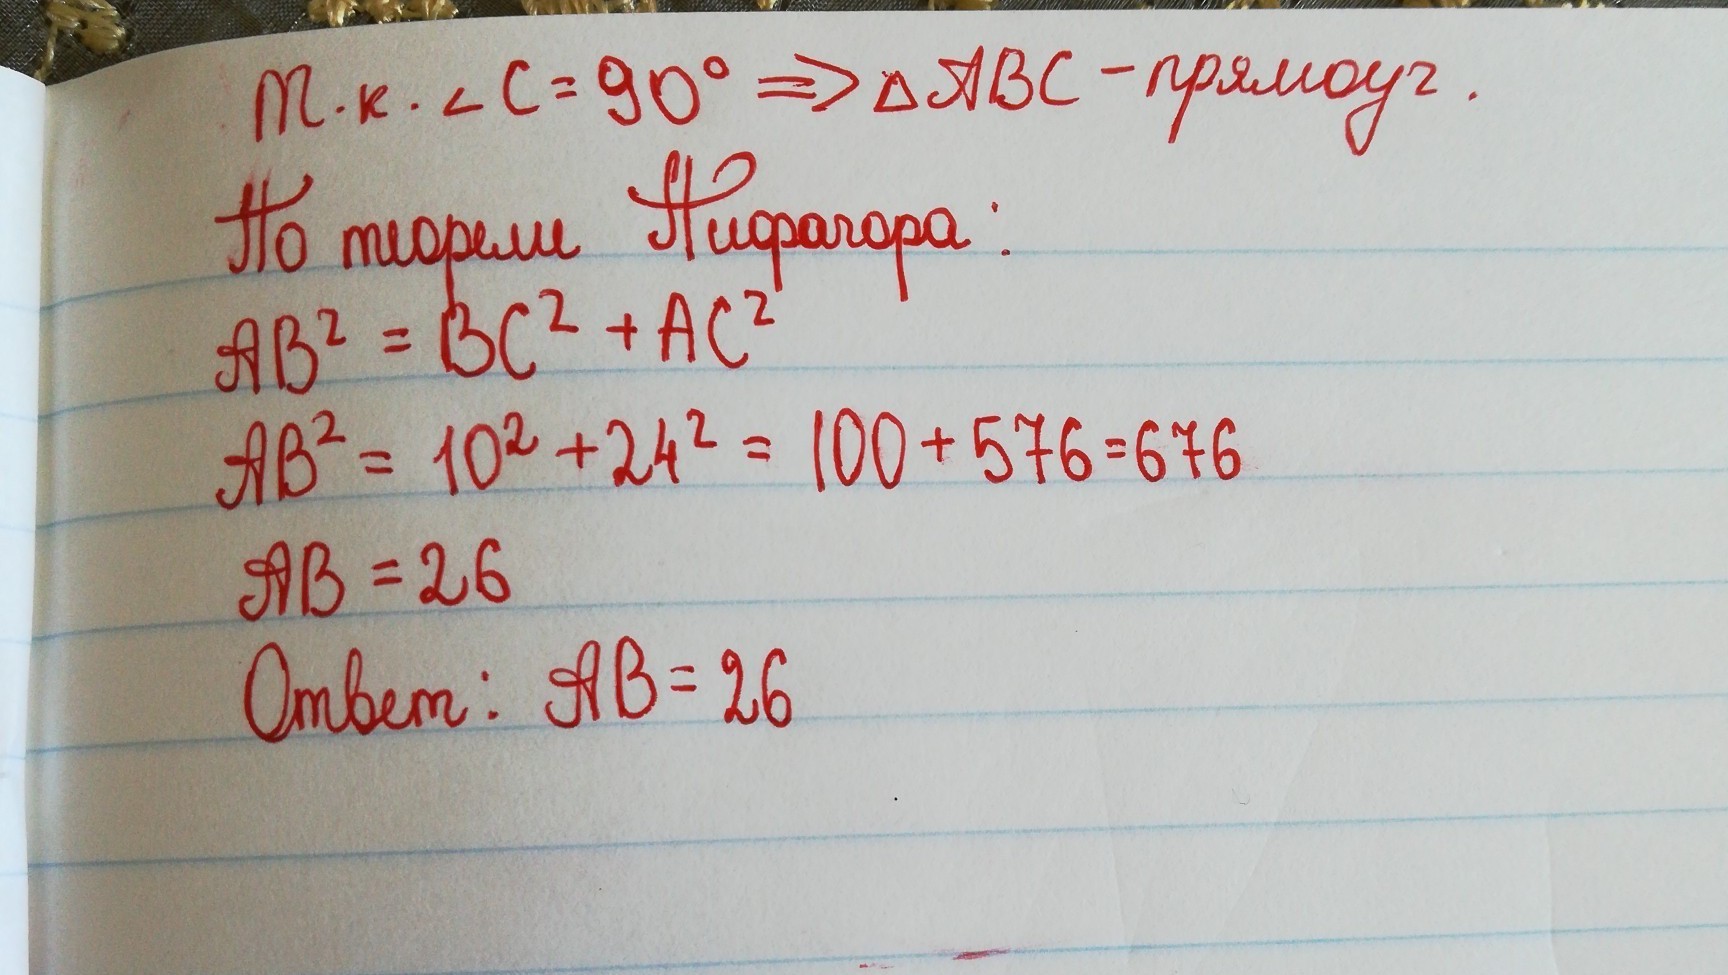 Т.к. ∠ C = 90° => △ ABC - прямоуг.
По теореме Пифагора:
AB² = BC² + AC²
AB² = 10² + 24² = 100 + 576 = 676
AB = 26
Ответ: AB = 26